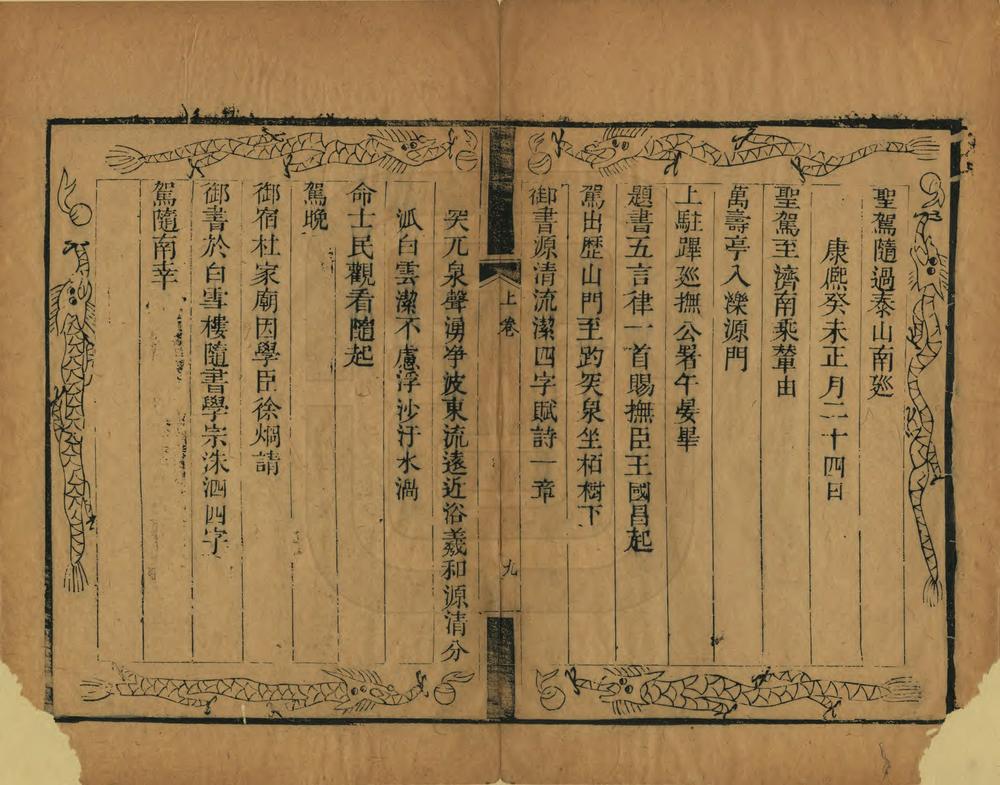 聖駕隨過泰山南廵
康熈癸未正月二十四日
聖駕至濟南乘輦由
萬壽亭入濼源門
上駐蹕廵撫公署午晏畢
題書五言律一首賜撫臣王國昌起
駕出歴山門至趵突泉坐栢樹下
御書源清流潔四字賦詩一章
上卷
九
突兀泉聲湧净波東流遠近浴羲和源清分
派白雲潔不慮浮沙汙水渦
命士民觀看隨起
駕晚
御宿杜家廟因學臣徐炯請
御書於白雪樓隨書學宗洙泗四字
駕隨南幸